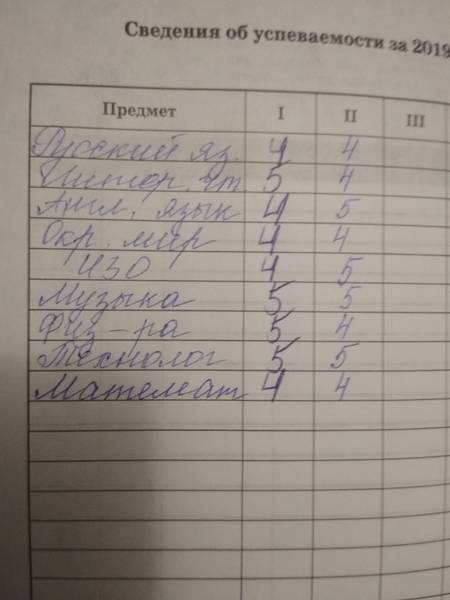 Сведения об успеваемости за 2019
Предмет I II III
Русский яз. 4 4
Литер. чт 5 4
Англ. язык 4 5
Окр. мир 4 4
ИЗО 4 5
Музыка 5 5
Физ-ра 5 4
Технолог 5 5
Математ 4 4